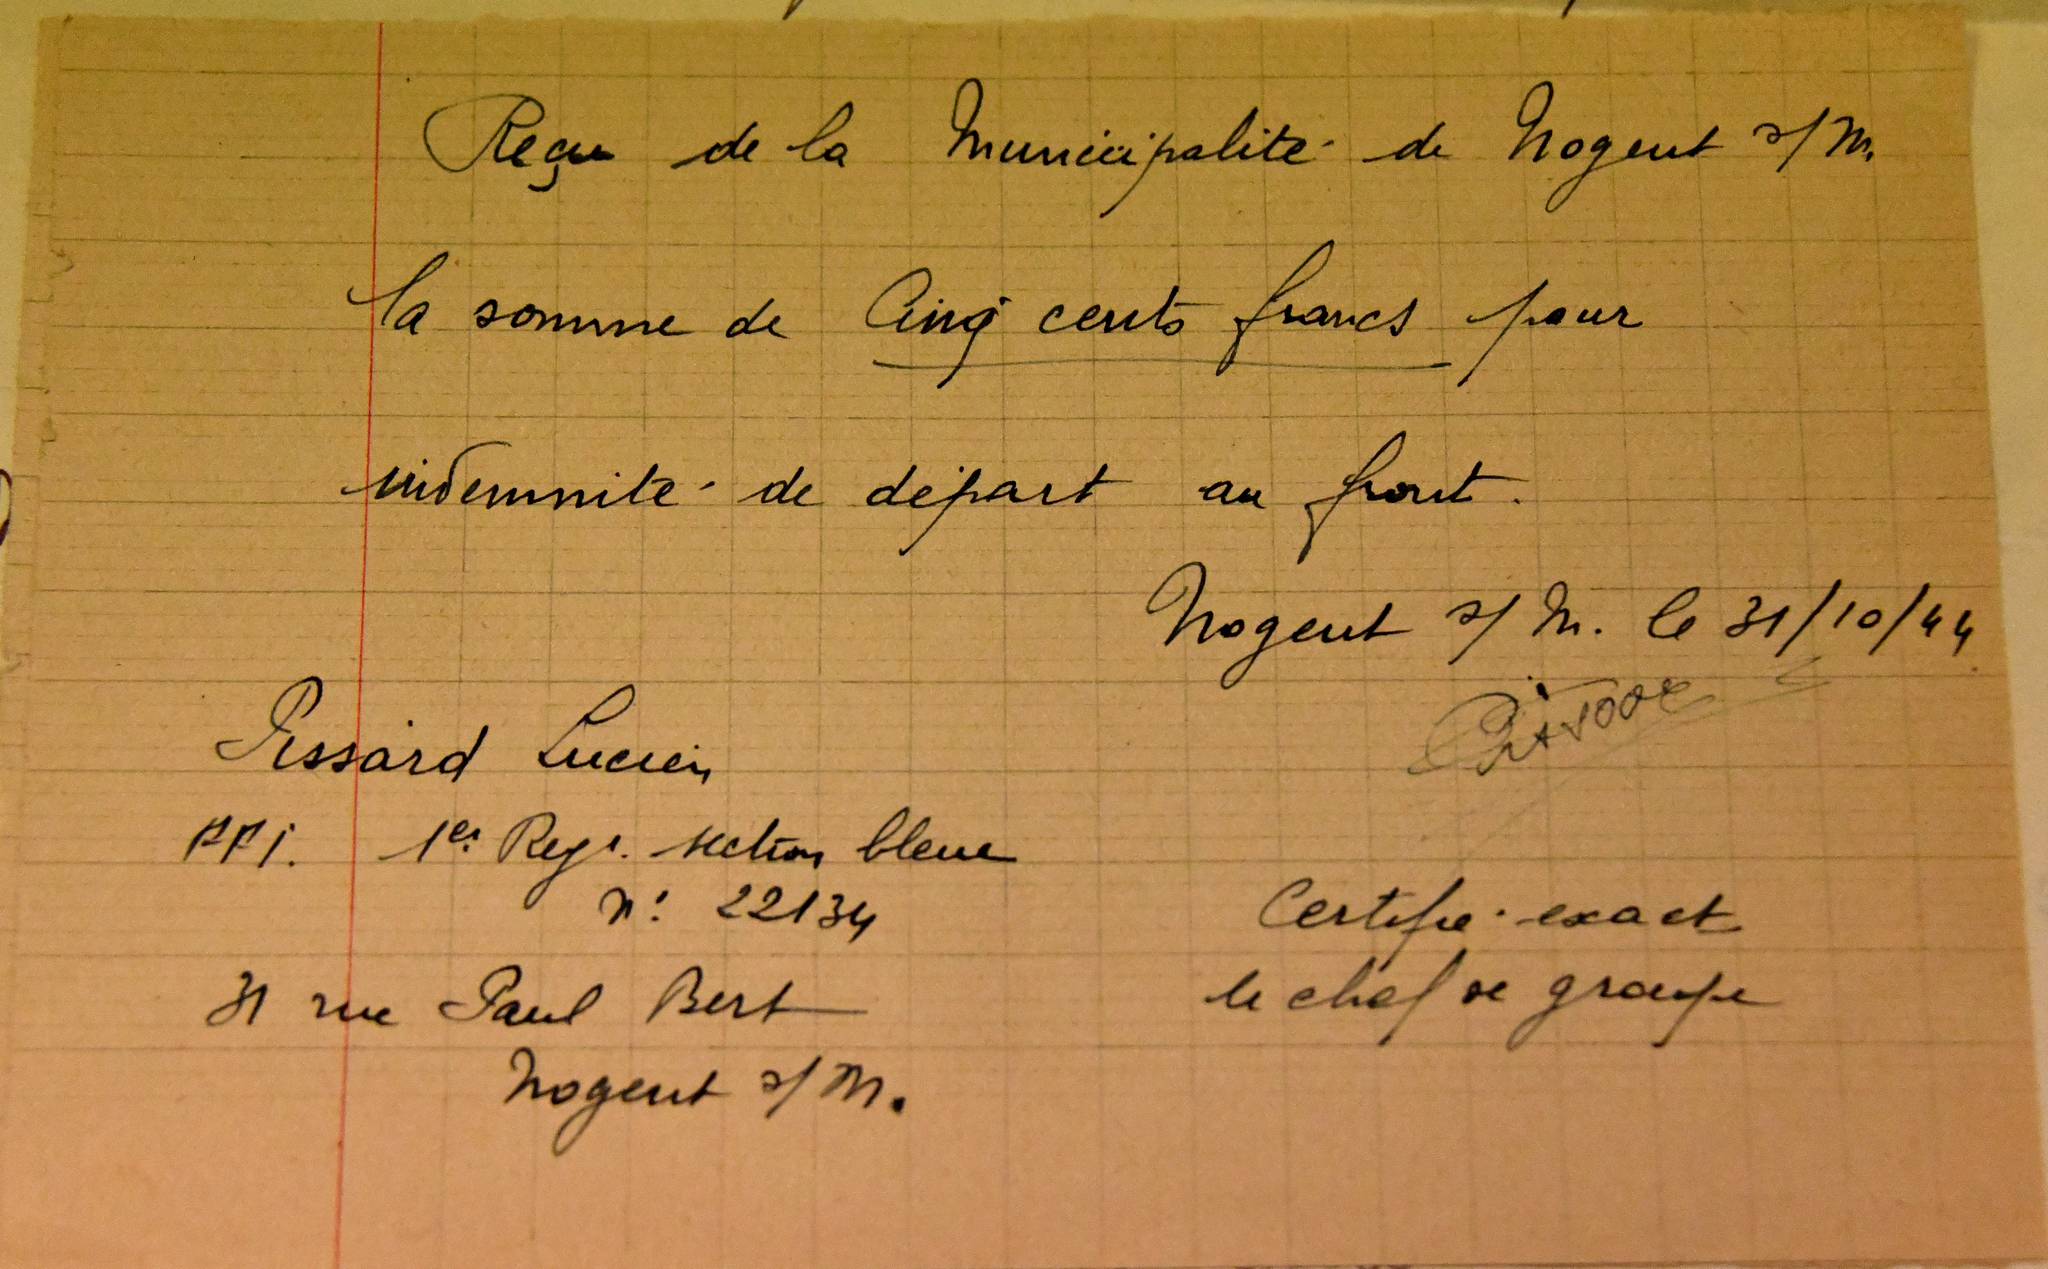 Reçu de la Municipalité de Nogent s/ M.
la somme de Cinq cents francs pour
indemnité de départ au front.
Nogent s/ M. le 31/10/44
Pissard Lucien
FFI. 1er Regt. section bleue
N° 22134
31 rue Paul Bert
Nogent s/ M.
Certifié exact
le chef de groupe